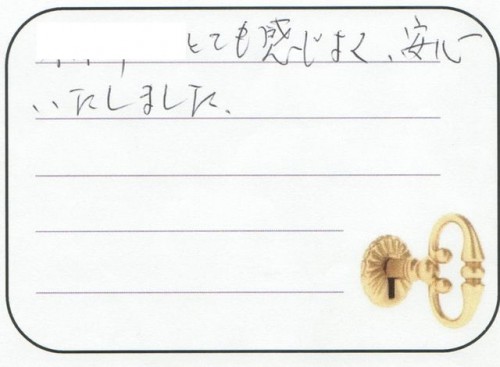 とても感じよく、安心
いたしました。